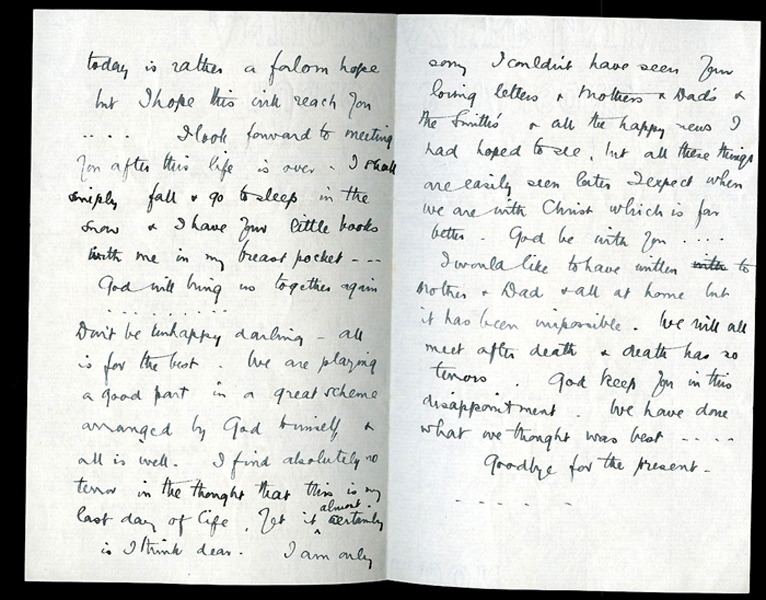 today is rather a forlorn hope
but I hope this will reach you
.... I look forward to meeting
you after this life is over - I shall
simply fall & go to sleep in the
snow & I have your little books
with me in my breast pocket ---
God will bring us together again
. . . . . . . .
Don't be unhappy darling - all
is for the best. We are playing
a good part in a great scheme
arranged by God himself &
all is well. I find absolutely no
terror in the thought that this is my
last day of life. Yet it almost certainly
is I think dear. I am only
sorry I couldn't have seen your
loving letters & Mothers & Dad's &
the Smith's & all the happy news I
had hoped to see, but all these things
are easily seen later I expect when
we are with Christ which is far
better. God be with you ....
I would like to have written with to
Mother & Dad & all at home but
it has been impossible. We will all
meet after death & death has no
terrors. God keep you in this
disappointment. We have done
what we thought was best ----
Goodbye for the present -
- - - - -